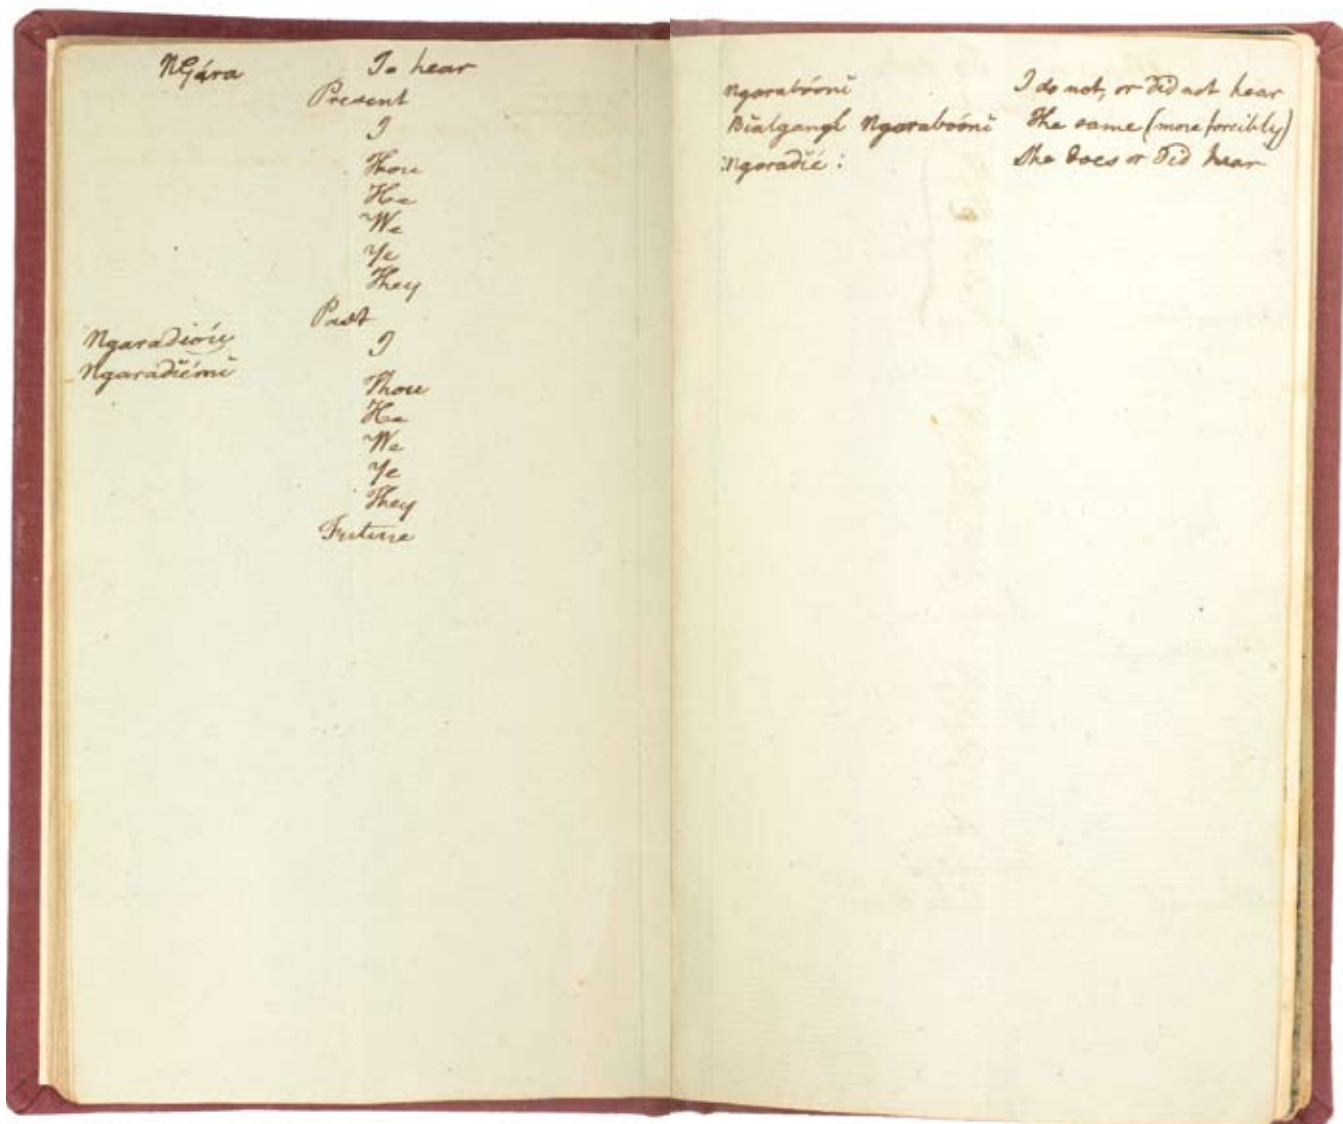 NGára To hear
Present
I
Thou
He
We
Ye
They
Past
Ngaradióu I
Ngaradiémi Thou
He
We
Ye
They
Future
Ngarabóoni I do not, or did not hear
Bialgangl Ngarabóoni The same (more forcibly)
Ngaradíe: She does or did hear